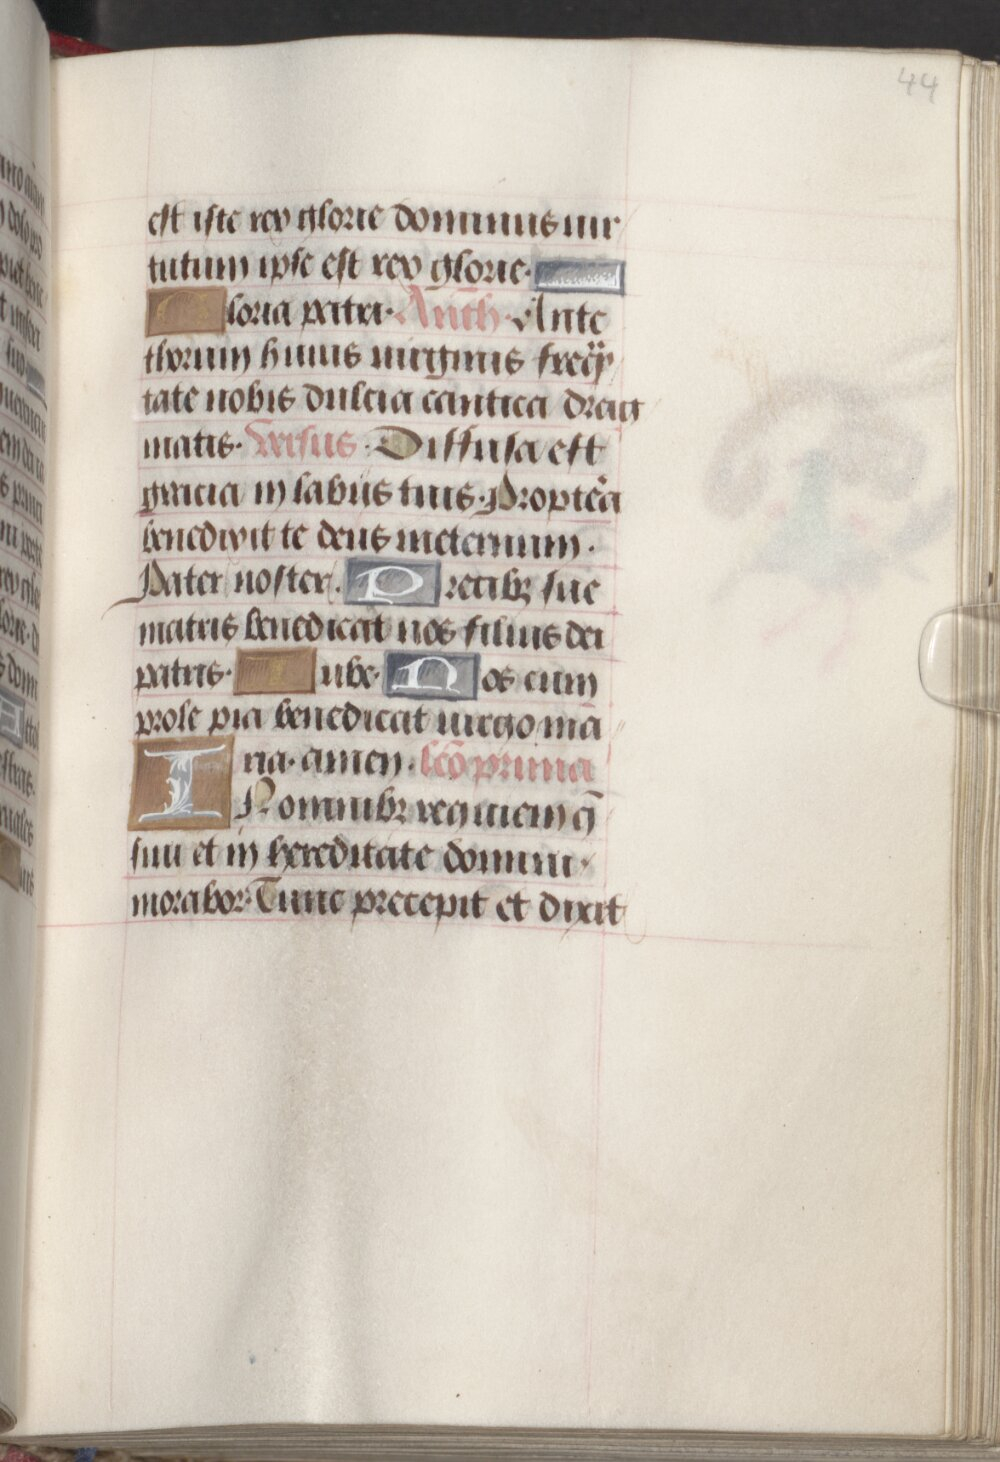 44
est iste rex glorie dominus uir
tutum ipse est rex glorie.
Gloria patri. Anth. Ante
thorum huius uirginis freq̄
tate nobis dulcia cantica drag
matis. Versus. Diffusa est
gracia in labiis tuis. Proptēa
benedixit te deus ineternum.
Pater noster. Precibꝫ sue
matris benedicat nos filius dei
patris. Iube. Nos cum
prole pia benedicat uirgo mā
ria. amen. lc̄o prima
IN omnibꝫ requiem q̄
siui et in hereditate domini
morabor. Tunc precepit et dixit